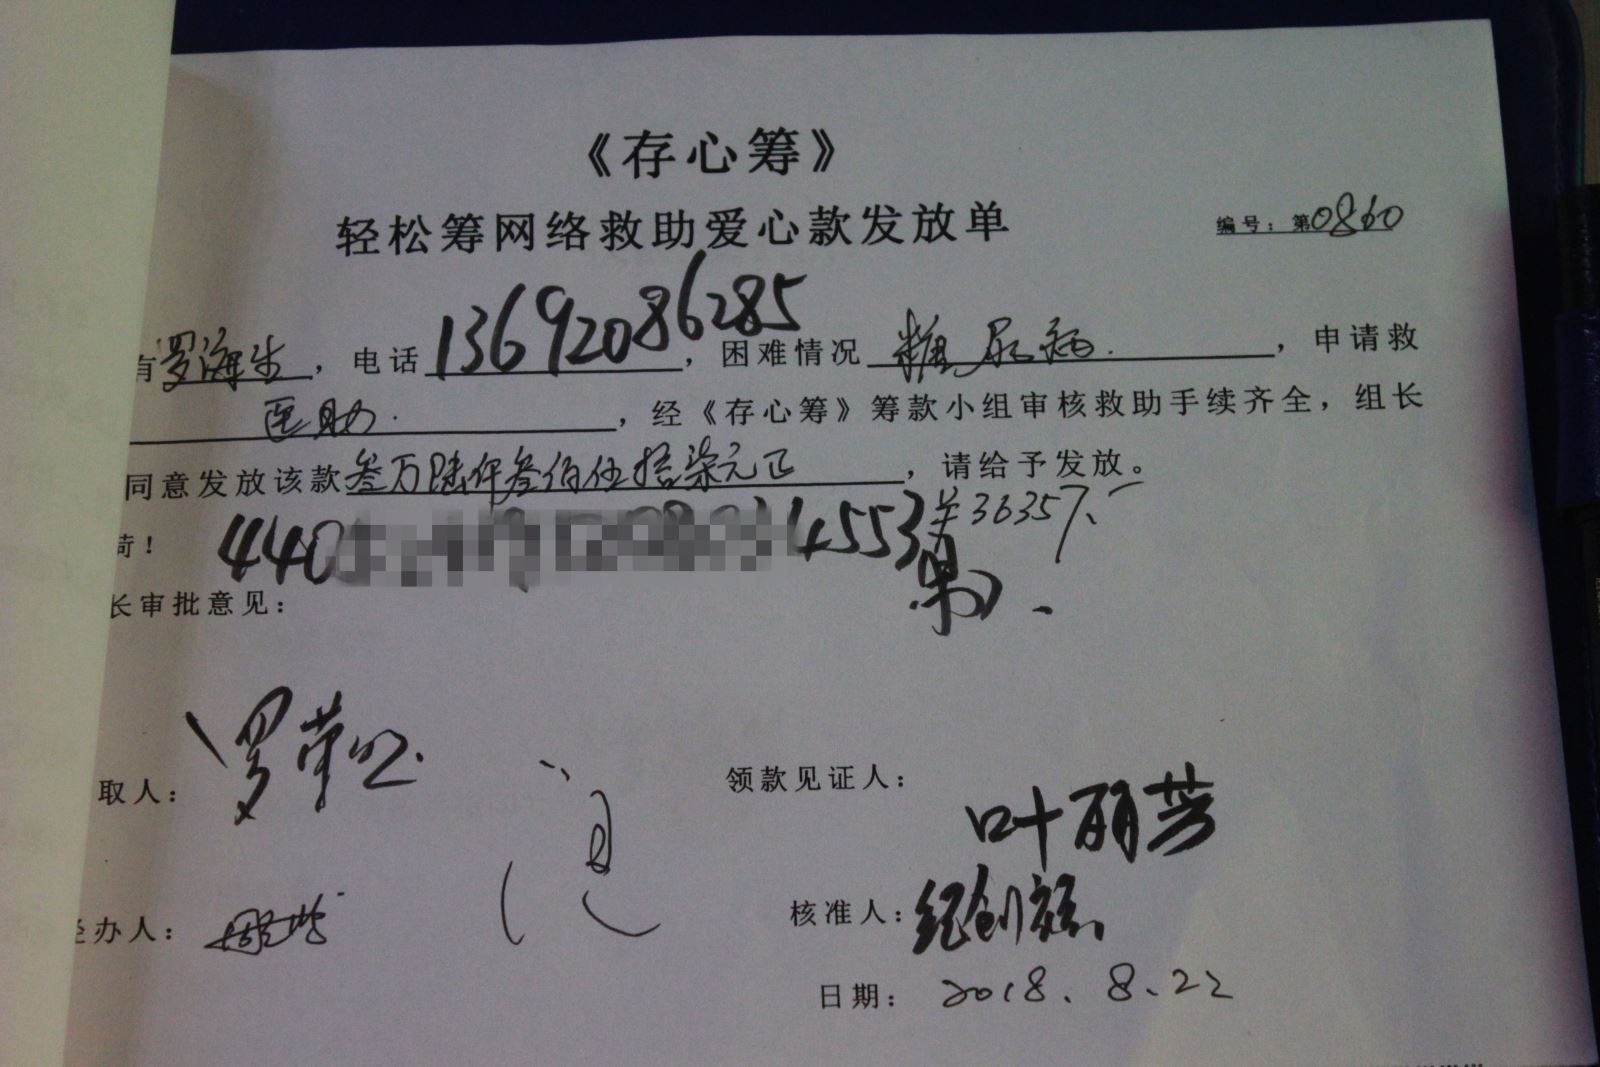 《存心筹》
轻松筹网络救助爱心款发放单
编号：第0860
有罗海生，电话13692086285，困难情况 糖尿病.，申请救
医助.，经《存心筹》筹款小组审核救助手续齐全，组长
同意发放该款叁万陆仟叁佰伍拾柒元正，请给予发放。
¥36357.一
荷！ 440 4553
长审批意见：
取人： 罗荣
领款见证人： 叶丽芳
经办人：
核准人： 纪创
日期： 2018.8.22